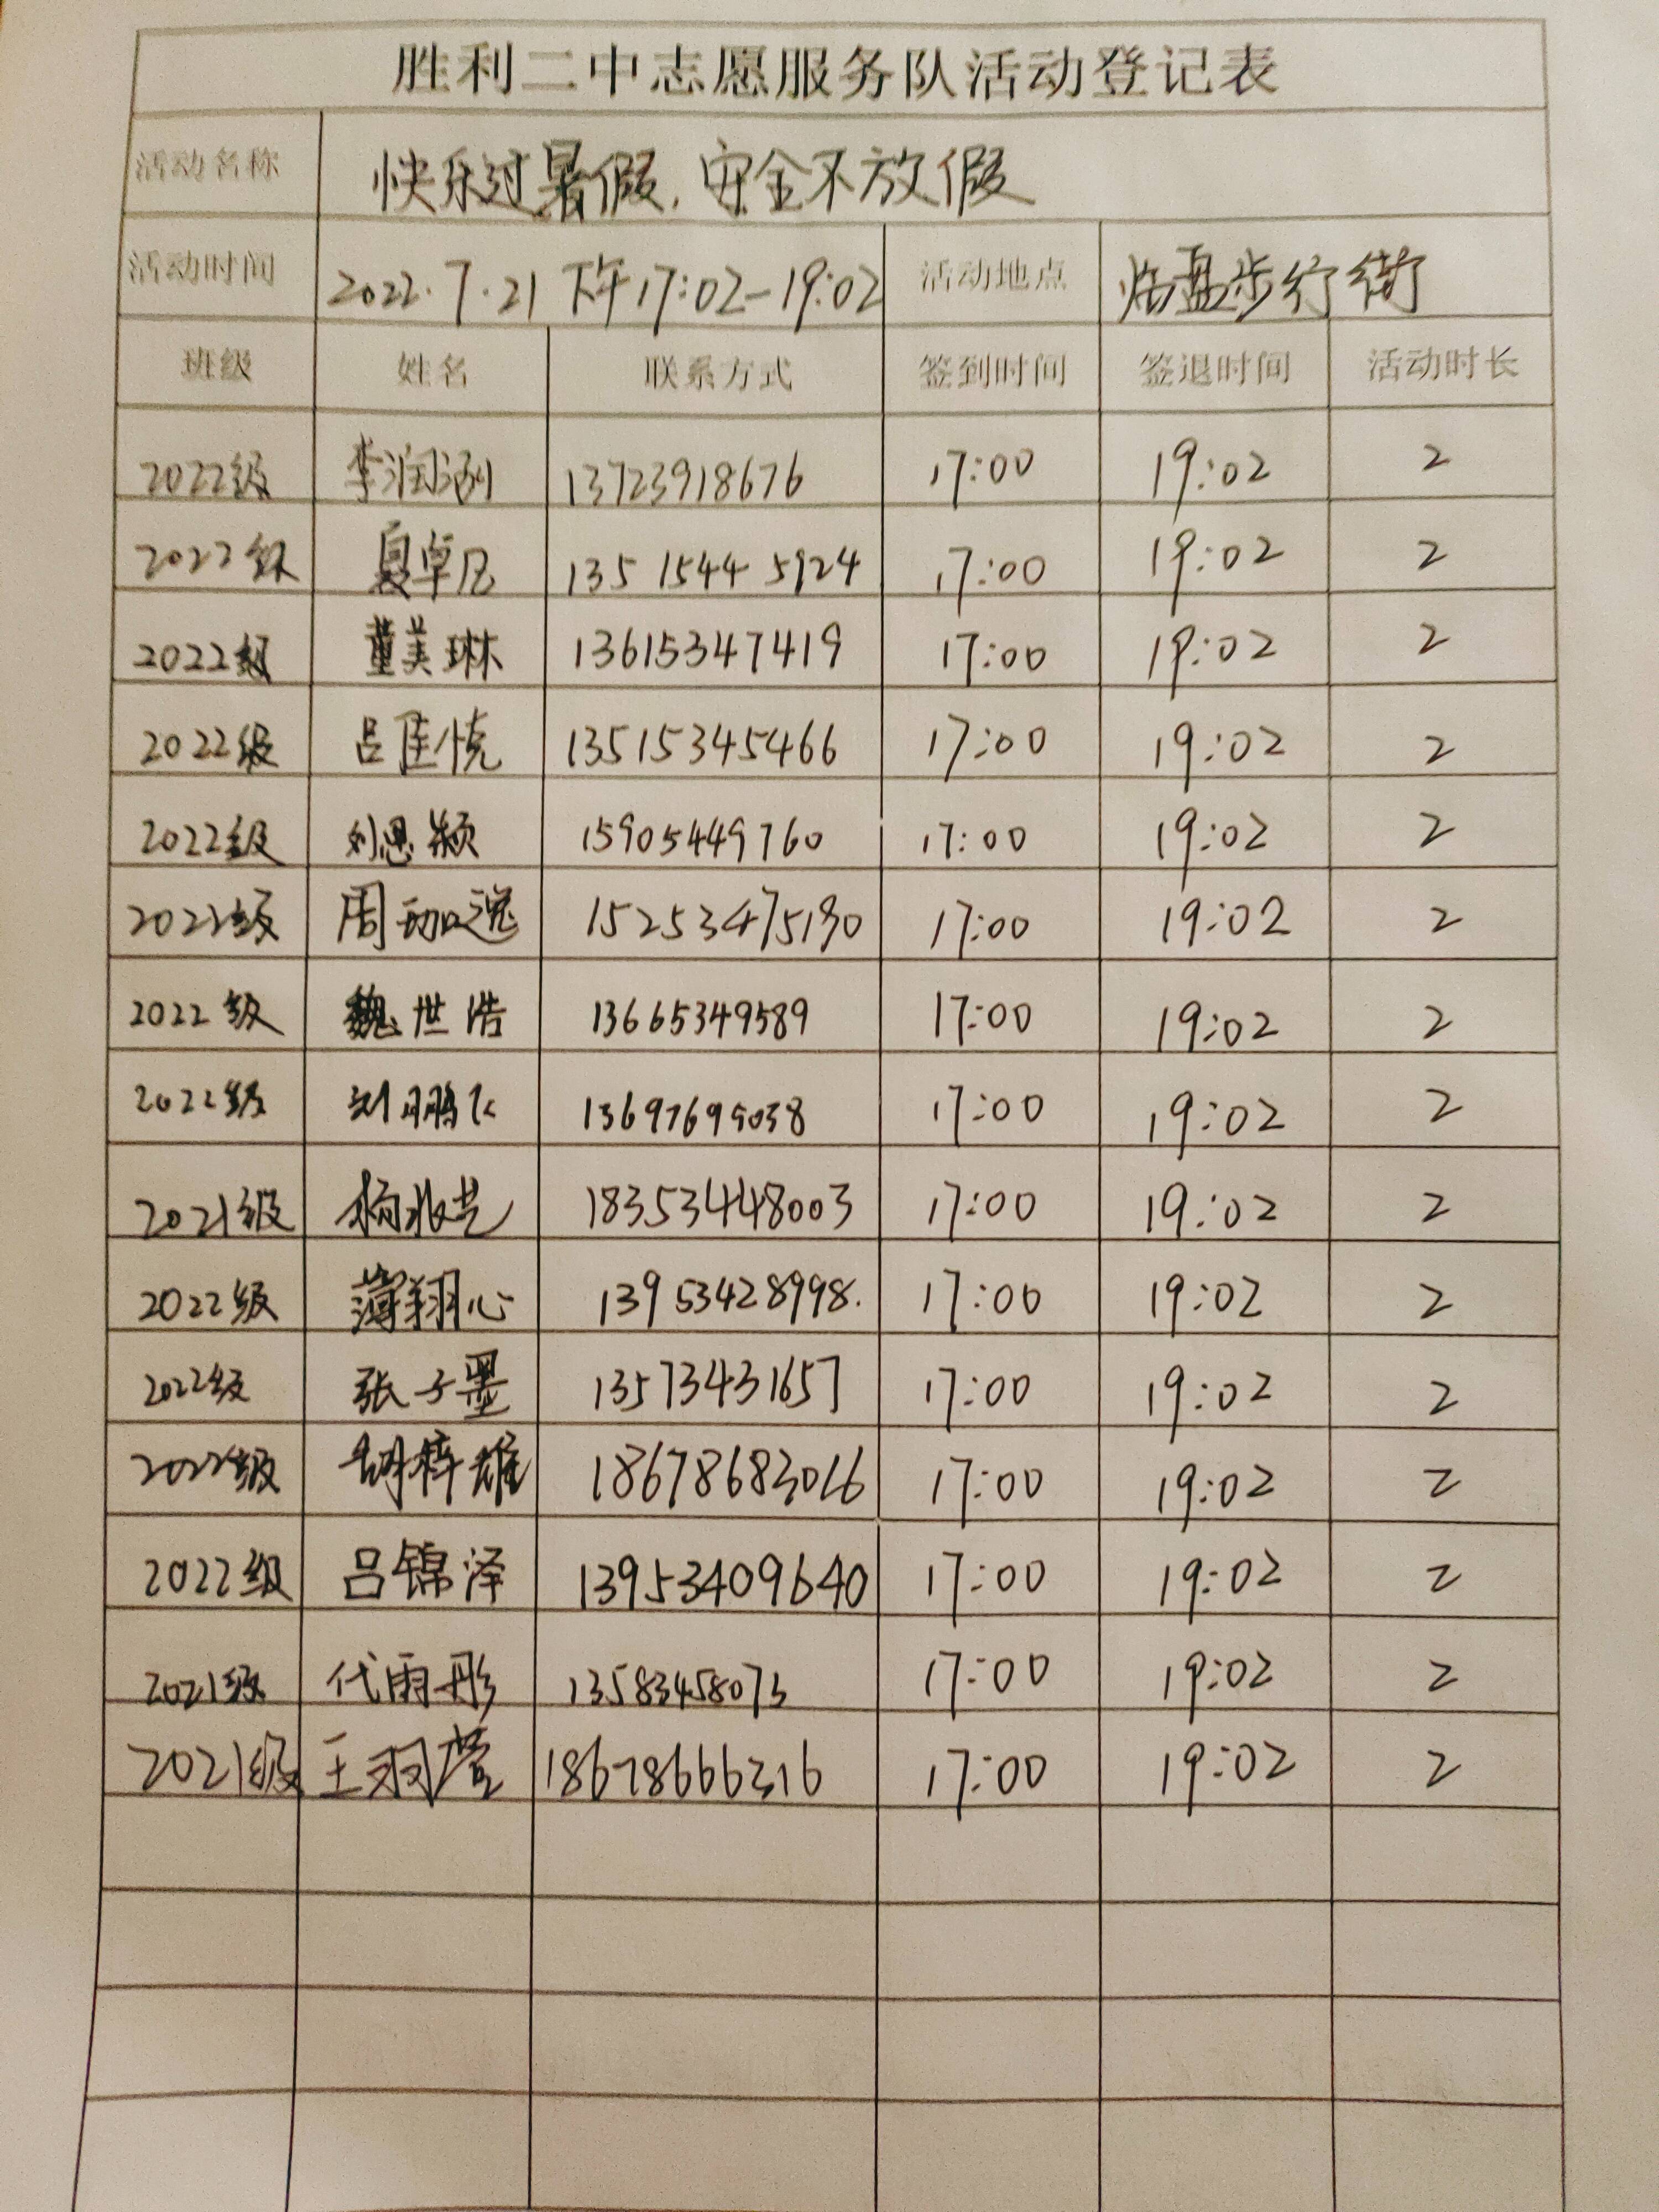 胜利二中志愿服务队活动登记表
活动名称 快乐过暑假,安全不放假
活动时间 2022.7.21 下午17:02-19:02 活动地点 临盘步行街
班级 姓名 联系方式 签到时间 签退时间 活动时长
2022级 李润涵 13723918676 17:00 19:02 2
2022级 夏卓凡 135 1544 5924 17:00 19:02 2
2022级 董美琳 13615347419 17:00 19:02 2
2022级 吕佳悦 13515345466 17:00 19:02 2
2022级 刘思颍 15905449760 17:00 19:02 2
2022级 周珈逸 15253475190 17:00 19:02 2
2022级 魏世浩 13665349589 17:00 19:02 2
2022级 刘鹏飞 13697695038 17:00 19:02 2
2021级 杨兆艺 18353448003 17:00 19:02 2
2022级 薄翔心 13953428998. 17:00 19:02 2
2022级 张子墨 13573431657 17:00 19:02 2
2022级 胡梓雄 18678683016 17:00 19:02 2
2022级 吕锦泽 13953409640 17:00 19:02 2
2021级 代雨彤 13583458073 17:00 19:02 2
2021级 王羽萱 18678666316 17:00 19:02 2